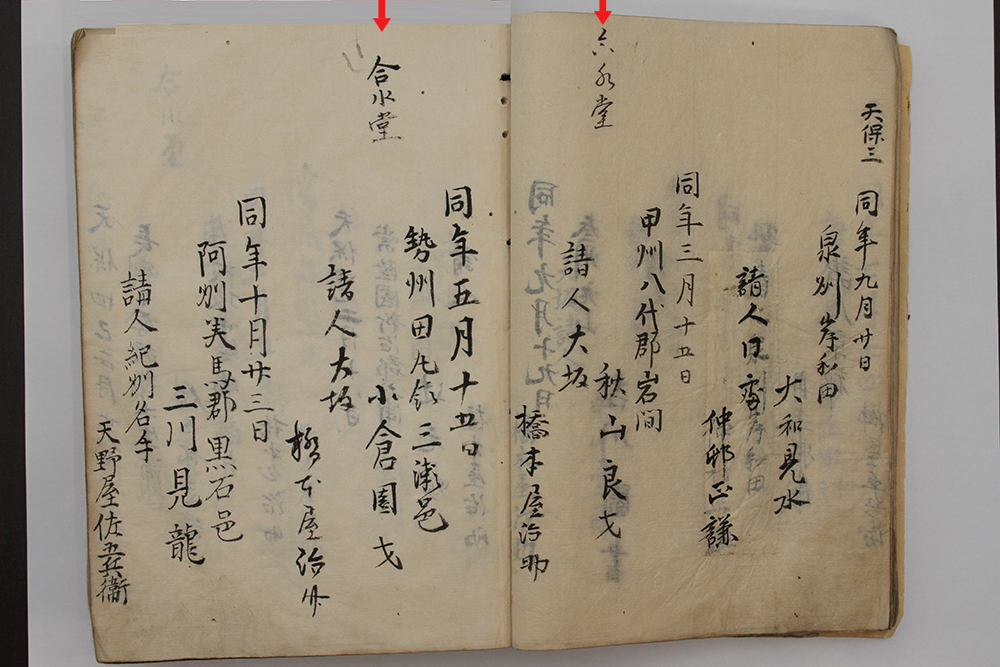 天保三
同年九月廿日
泉州岸和田
大和見水
請人同所
仲邨正謙
合水堂
同年三月十五日
甲州八代郡岩間
秋山良戈
請人大坂
橋本屋治助
合水堂
同年五月十五日
勢州田丸領三瀬邑
小倉園戈
請人大坂
橋本屋治助
同年十月廿三日
阿州美馬郡黒石邑
三川見龍
請人紀州名手
天野屋佐五兵衛